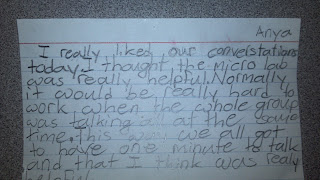 Anya
I really liked our converstations
today. I thought the micro lab
was really helpful. Normally
it would be really hard to
work when the whole group
was talking all at the same
time, this way we all got
to have one minute to talk
and that I think was realy